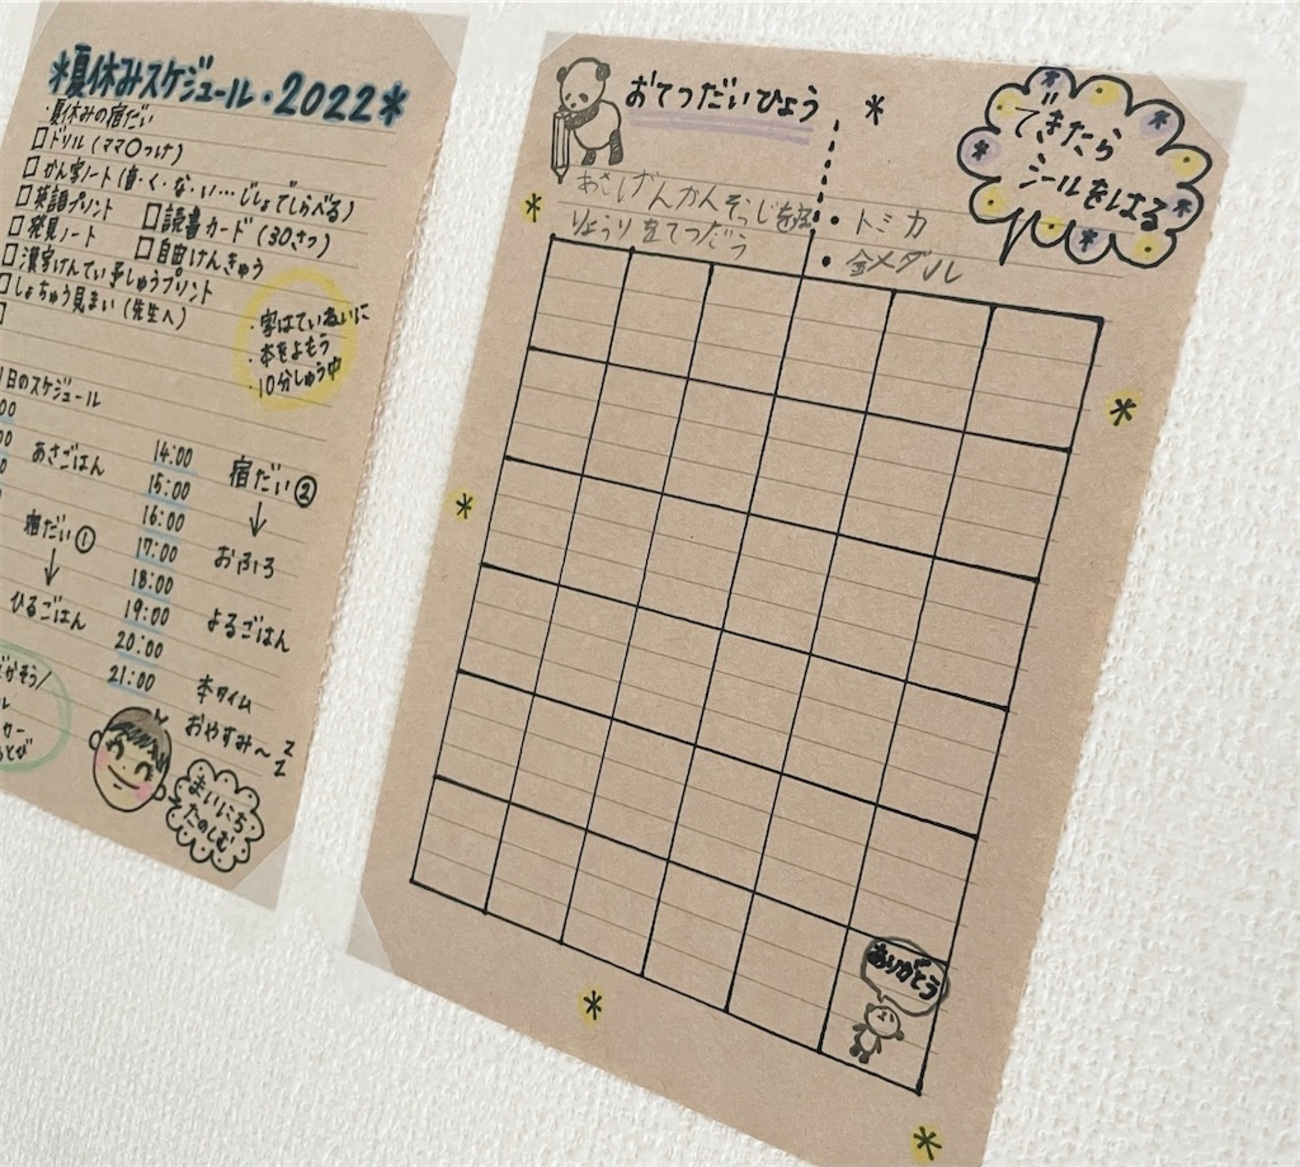 *夏休みスケジュール・2022*
・夏休みの宿だい
□ドリル(ママ○つけ)
□かん字ノート(音・く・な・い…じしょでしらべる)
□英語プリント □読書カード(30さつ)
□発見ノート □自由けんきゅう
□漢字けんてい予しゅうプリント
□しょちゅう見まい(先生へ)
・字はていねいに
・本をよもう
・10分しゅう中
1日のスケジュール
あさごはん
宿だい①
↓
ひるごはん
14:00
15:00
16:00
17:00
18:00
19:00
20:00
21:00
宿だい②
↓
おふろ
よるごはん
本タイム
おやすみ〜zz
まいにち
たのしむ
おてつだいひょう
*
できたら
シールをはる
あさ げんかんそうじを
りょうりをてつだう
・トミカ
・金メダル
ありがとう